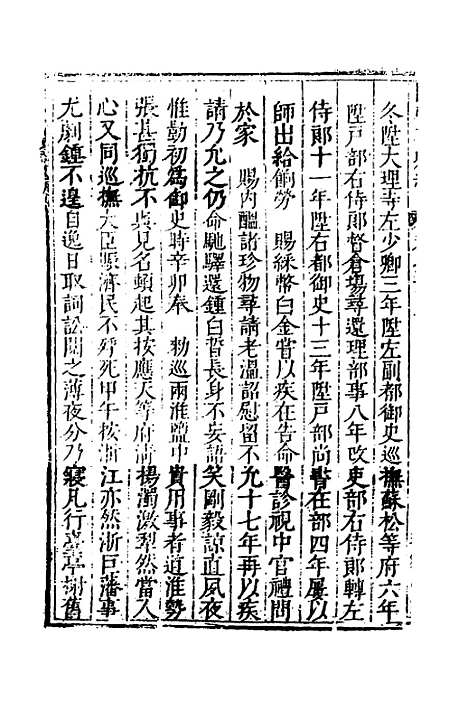 冬陞大理寺左少卿三年陞左副都御史巡撫蘇松等府六年
陞戶部右侍郞督倉場尋還理部事八年改吏部右侍郞轉左
侍郞十一年陞右都御史十三年陞戶部尚書在部四年屢以
師出給餉勞 賜綵幣白金嘗以疾在告命醫診視中官禮問
於家 賜内醞諸珍物尋請老溫詔慰留不允十七年再以疾
請乃允之仍命馳驛還鍾白晳長身不妄語笑剛毅諒直夙夜
惟勤初爲御史時辛卯奉 勑巡兩淮鹽中貴用事者道淮勢
張甚獨抗不與見名頓起其按應天等府淸揚濁激犁然當人
心又同巡撫大臣賑濟民不殍死甲午按浙江亦然浙巨藩事
尤劇鍾不遑自逸日取詞訟閱之薄夜分乃寢凡行臺亭榭舊